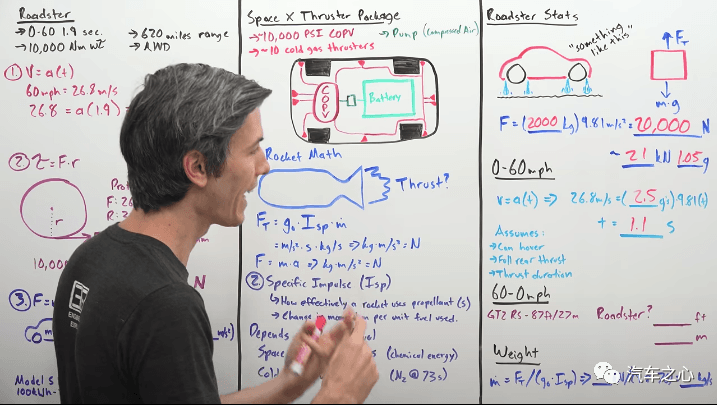 Roadster
→ 0-60 1.9 sec.
→ 620 miles range
→ 10,000 Nm wt
→ AWD
1. V = a(t)
60mph = 26.8 m/s
26.8 = a(1.9)
2. τ = F·r
r
10,000
N
3. F=
m
Model S
100kWh-
Space X Thruster Package
→ ~10,000 PSI COPV
→ Pump (Compressed Air)
→ ~10 cold gas thrusters
COPV
Battery
Rocket Math
Thrust?
F_T = g₀·Isp·ṁ
= m/s²·s·kg/s ⇒ kg·m/s² = N
F = m·a ⇒ kg·m/s² = N
2. Specific Impulse (Isp)
↳ How effectively a rocket uses propellant (s)
→ Change in per unit fuel used.
Depends
Space (chemical energy)
Cold (N₂ @ 73s)
Roadster Stats
"something like this"
F_T
m·g
F = (2000 kg) 9.81 m/s² = 20,000 N
~ 21 kN 1.05 g
0-60mph
V=a(t) ⇒ 26.8m/s = (2.5 g's)·9.81(t)
t = 1.1 s
Assumes:
→ Can hover
→ Full rear thrust
→ Thrust duration
60-0mph
GT2 RS - 87ft/27m
Roadster? ft
m
Weight
ṁ = F_T/(g₀·Isp) ⇒ N kg/s
汽车之心